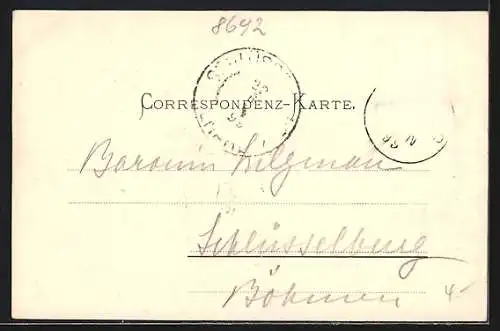 8692
CORRESPONDENZ-KARTE.
Baronin Dilgman
Schlüsselburg
Böhmen
4-